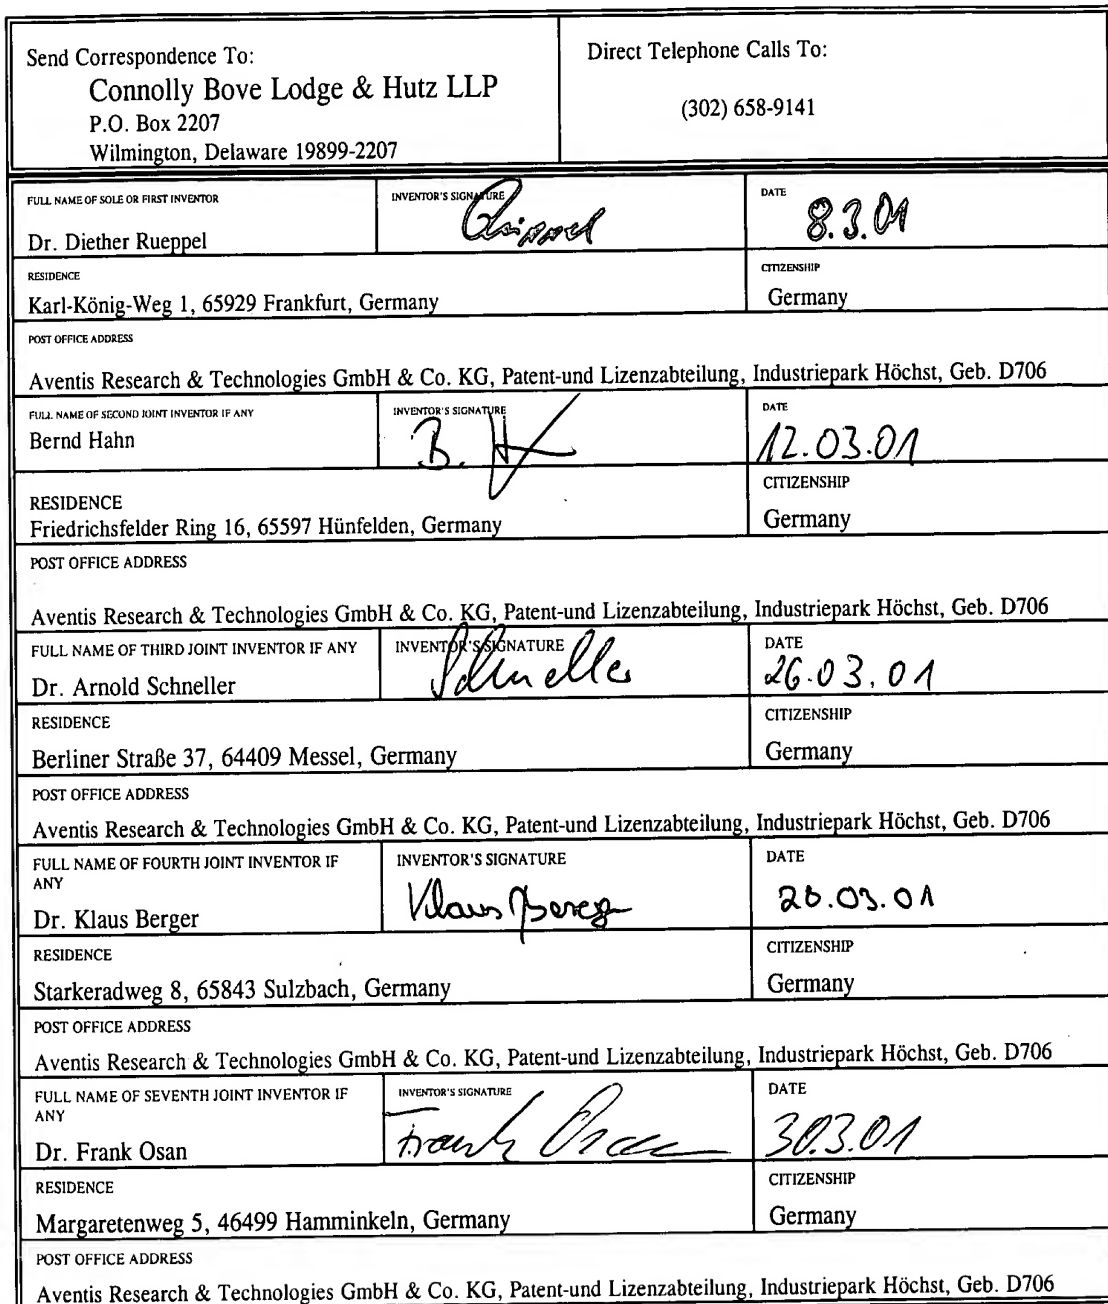 Send Correspondence To:
Connolly Bove Lodge & Hutz LLP
P.O. Box 2207
Wilmington, Delaware 19899-2207
Direct Telephone Calls To:
(302) 658-9141
FULL NAME OF SOLE OR FIRST INVENTOR
Dr. Diether Rueppel
INVENTOR'S SIGNATURE
DATE
8.3.01
RESIDENCE
Karl-König-Weg 1, 65929 Frankfurt, Germany
CITIZENSHIP
Germany
POST OFFICE ADDRESS
Aventis Research & Technologies GmbH & Co. KG, Patent-und Lizenzabteilung, Industriepark Höchst, Geb. D706
FULL NAME OF SECOND JOINT INVENTOR IF ANY
Bernd Hahn
INVENTOR'S SIGNATURE
B. H
DATE
12.03.01
RESIDENCE
Friedrichsfelder Ring 16, 65597 Hünfelden, Germany
CITIZENSHIP
Germany
POST OFFICE ADDRESS
Aventis Research & Technologies GmbH & Co. KG, Patent-und Lizenzabteilung, Industriepark Höchst, Geb. D706
FULL NAME OF THIRD JOINT INVENTOR IF ANY
Dr. Arnold Schneller
INVENTOR'S SIGNATURE
Schneller
DATE
26.03.01
RESIDENCE
Berliner Straße 37, 64409 Messel, Germany
CITIZENSHIP
Germany
POST OFFICE ADDRESS
Aventis Research & Technologies GmbH & Co. KG, Patent-und Lizenzabteilung, Industriepark Höchst, Geb. D706
FULL NAME OF FOURTH JOINT INVENTOR IF
ANY
Dr. Klaus Berger
INVENTOR'S SIGNATURE
Klaus Berger
DATE
RESIDENCE
Starkeradweg 8, 65843 Sulzbach, Germany
CITIZENSHIP
Germany
POST OFFICE ADDRESS
Aventis Research & Technologies GmbH & Co. KG, Patent-und Lizenzabteilung, Industriepark Höchst, Geb. D706
FULL NAME OF SEVENTH JOINT INVENTOR IF
ANY
Dr. Frank Osan
INVENTOR'S SIGNATURE
Frank Osan
DATE
30.3.01
RESIDENCE
Margaretenweg 5, 46499 Hamminkeln, Germany
CITIZENSHIP
Germany
POST OFFICE ADDRESS
Aventis Research & Technologies GmbH & Co. KG, Patent-und Lizenzabteilung, Industriepark Höchst, Geb. D706